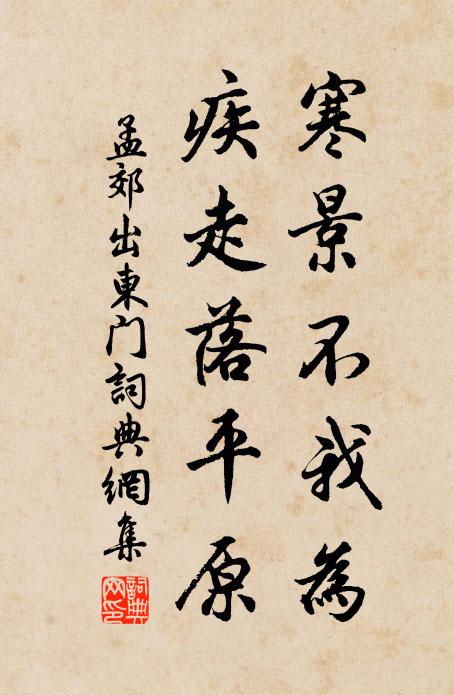 寒景不我為
疾走落平原
孟郊出東門詞典網集
詞典网印